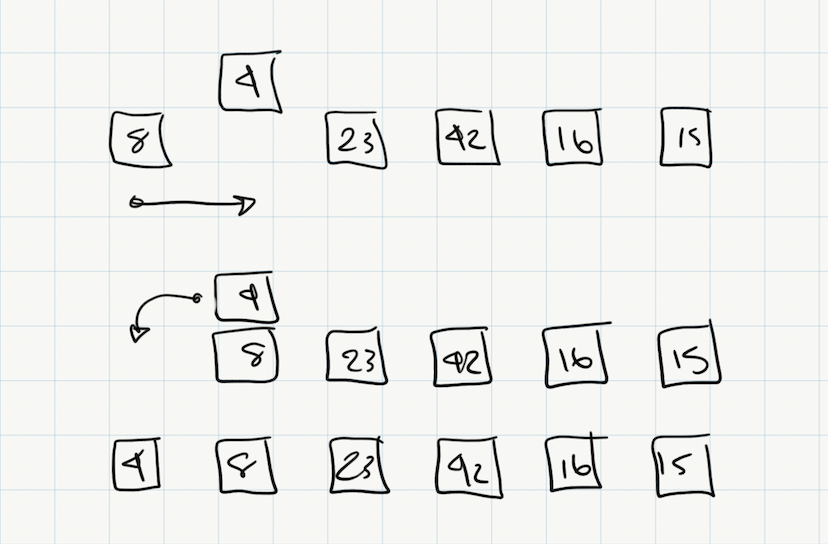 4
8 23 42 16 15
4
8 23 42 16 15
4 8 23 42 16 15